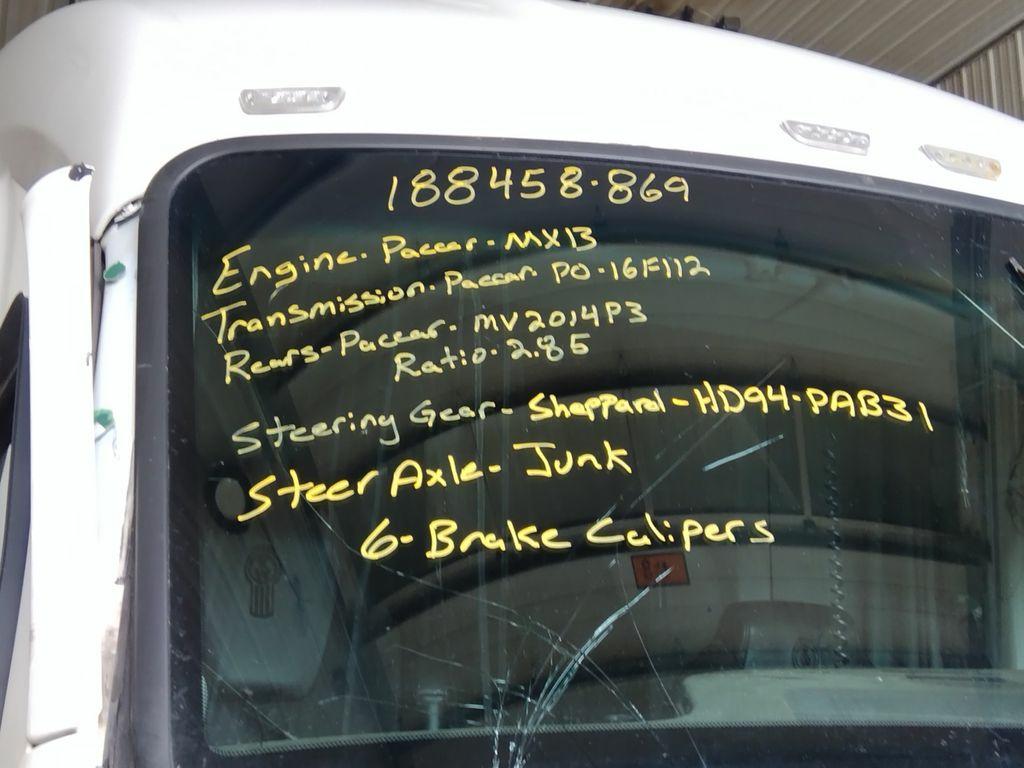 188458-869
Engine- Paccar- MX13
Transmission- Paccar PO-16F112
Rears- Paccar- MV2014P3
Ratio- 2.85
Steering Gear- Sheppard-HD94-PAB31
Steer Axle- Junk
6- Brake Calipers